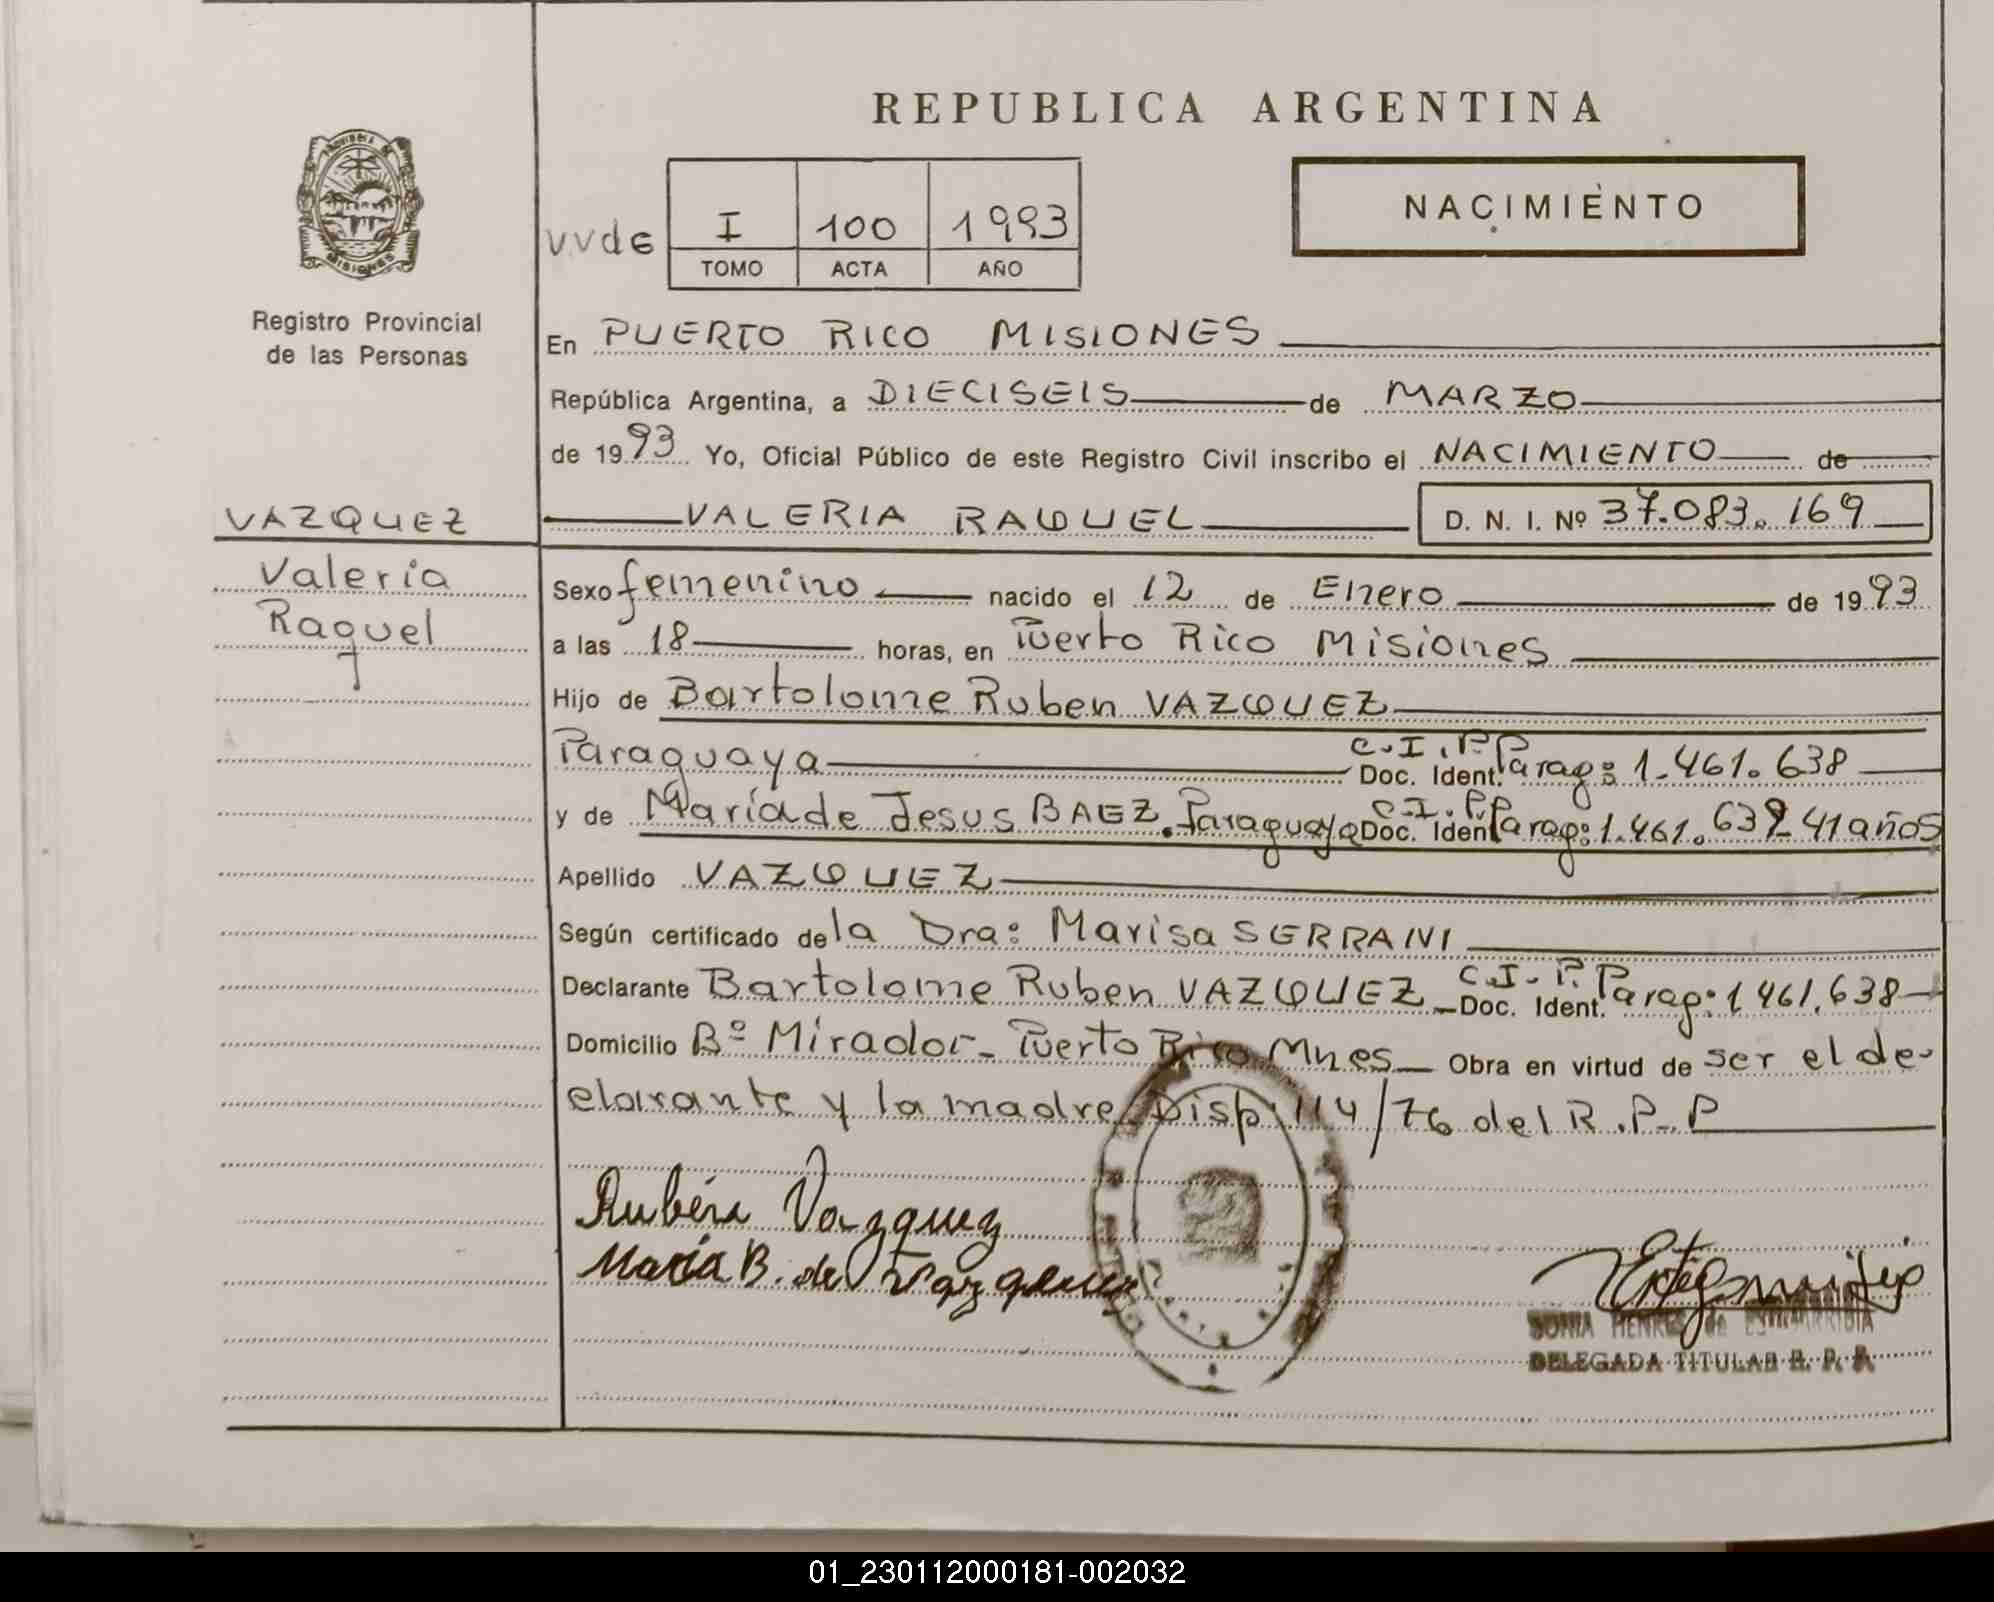 REPUBLICA ARGENTINA
PROVINCIA DE MISIONES
vvde I 100 1993 NACIMIENTO
TOMO ACTA AÑO
Registro Provincial
de las Personas
En PUERTO RICO MISIONES
República Argentina, a DIECISEIS de MARZO
de 1993 Yo, Oficial Público de este Registro Civil inscribo el NACIMIENTO de
VAZQUEZ
VALERIA RAQUEL D. N. I. Nº 37.083.169
Valeria
Raquel
Sexo femenino nacido el 12 de Enero de 1993
a las 18 horas, en Puerto Rico Misiones
Hijo de Bartolome Ruben VAZQUEZ
Paraguaya C.I.P. Doc. Ident. Parag: 1.461.638
y de María de Jesus BAEZ. Paraguaya C.I.P. Doc. Ident Parag: 1.461.639 41 años
Apellido VAZQUEZ
Según certificado de la Dra: Marisa SERRANI
Declarante Bartolome Ruben VAZQUEZ C.I.P. Doc. Ident. Parag: 1461.638
Domicilio Bº Mirador - Puerto Rico Mnes Obra en virtud de ser el de-
clarante y la madre Disp 114/76 del R.P.P
Rubén Vazquez
María B. de Vazquez
SONIA HENRI de
DELEGADA TITULAR R. P. P.
01_230112000181-002032